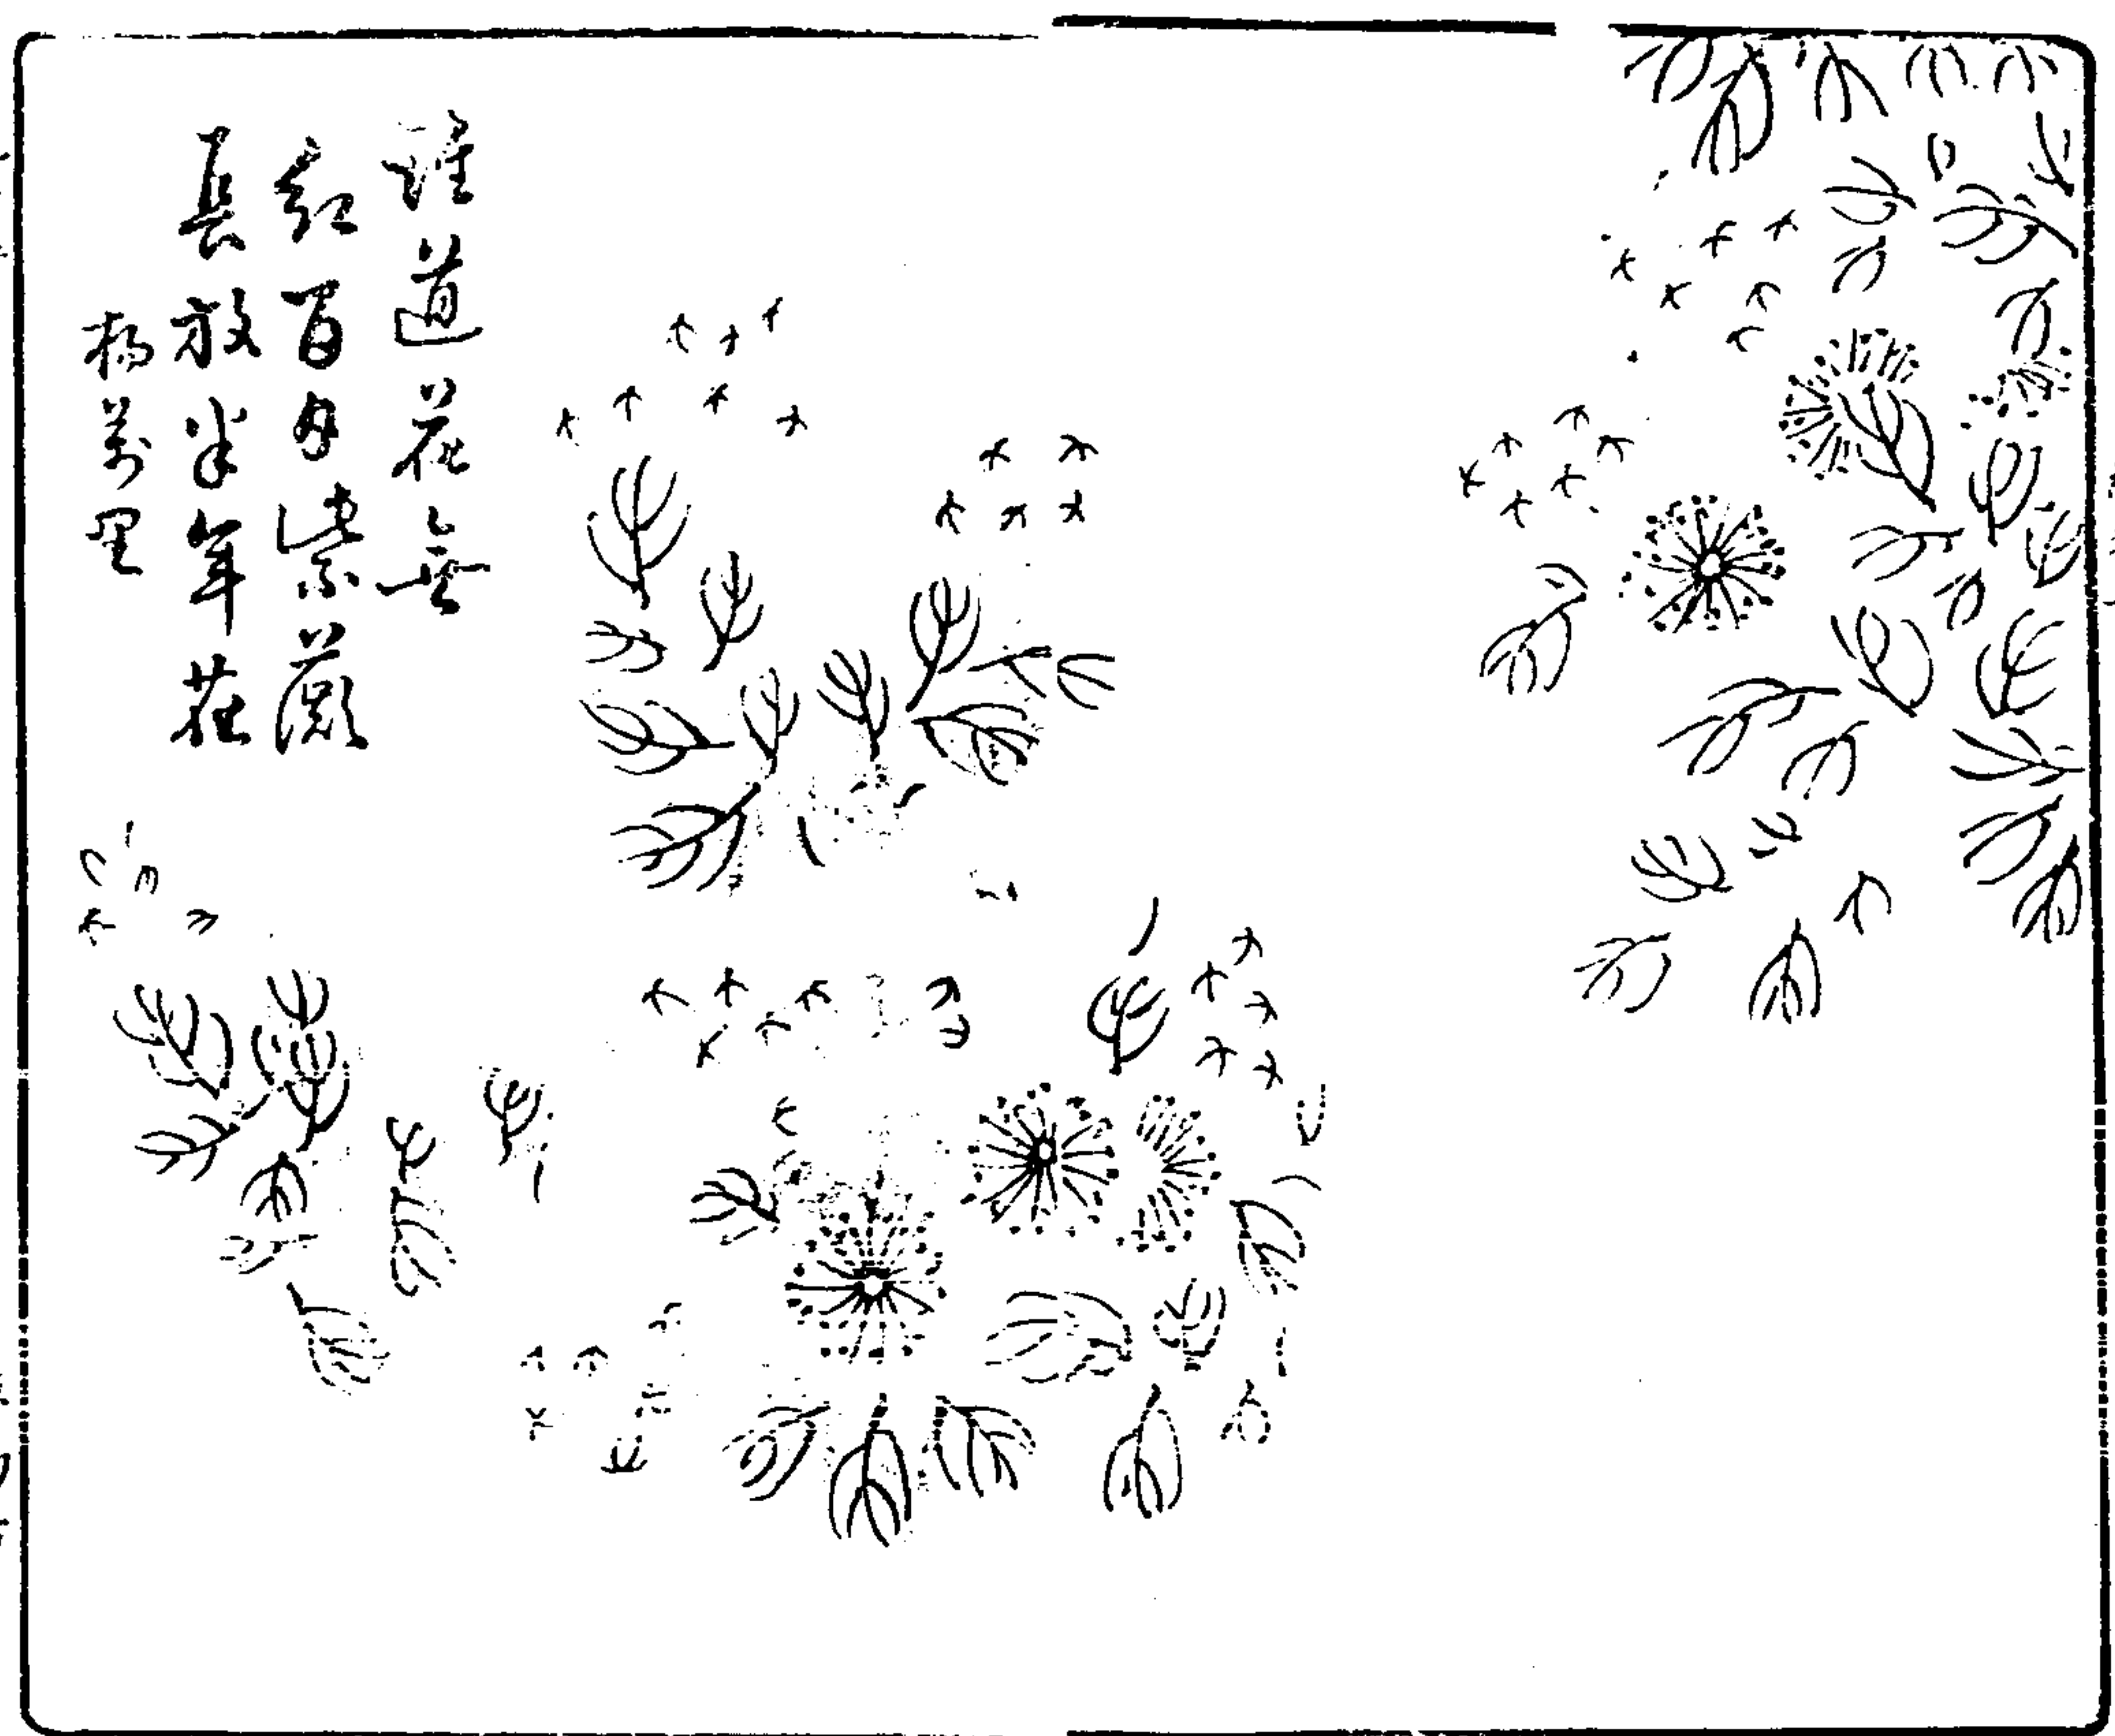 誰道花無
紅百日紫薇
長放半年花
楊萬里